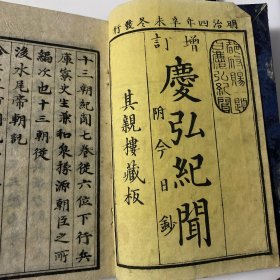 明治四年辛未冬發行
增訂
慶弘紀聞
附今日鈔
其親樓藏板
十三朝紀聞七卷從六位下行兵
庫寮史生兼和泉掾源朝臣之所
編次也十三朝從
後水尾帝朝記